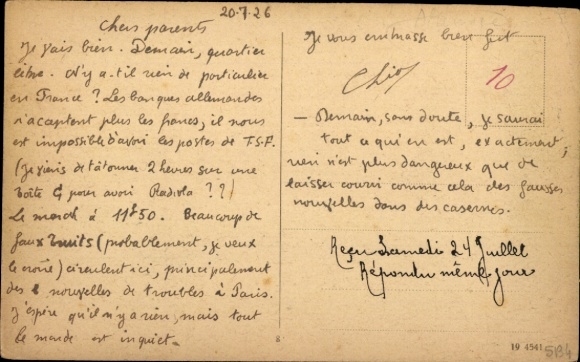 20.7.26
Chers parents
Je vais bien. Demain, quartier
libre. N'y a-t-il rien de particulier
en France ? Les banques allemandes
n'acceptent plus les francs, il nous
est impossible d'avoir les postes de T.S.F.
(Je viens de tâtonner 2 heures sur une
boîte pour avoir Radiola ??)
Le mark à 11f50. Beaucoup de
faux bruits (probablement, je veux
le croire) circulent ici, principalement
des nouvelles de troubles à Paris.
J'espère qu'il n'y a rien, mais tout
le monde est inquiet.
Je vous embrasse bien fort
10
— Demain, sans doute, je saurai
tout ce qu'il en est, exactement ;
rien n'est plus dangereux que de
laisser courir comme cela des fausses
nouvelles dans des casernes.
Reçu Samedi 24 Juillet
Répondu même jour
8
19 4541